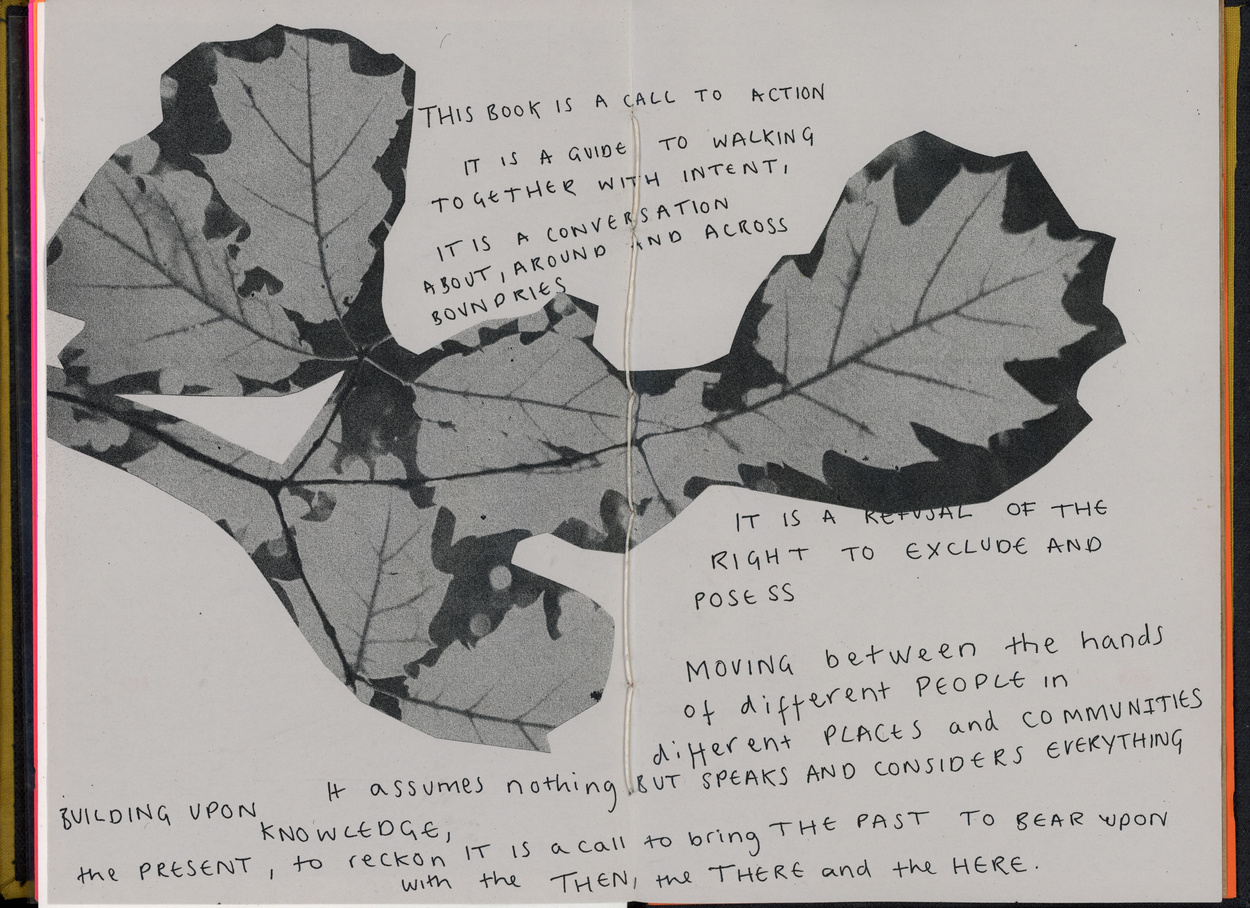 THIS BOOK IS A CALL TO ACTION
IT IS A GUIDE TO WALKING
TOGETHER WITH INTENT,
IT IS A CONVERSATION
ABOUT, AROUND AND ACROSS
BOUNDRIES
IT IS A REFUSAL OF THE
RIGHT TO EXCLUDE AND
POSESS
MOVING between the hands
of different PEOPLE in
different PLACES and COMMUNITIES
It assumes nothing BUT SPEAKS AND CONSIDERS EVERYTHING
BUILDING UPON
KNOWLEDGE,
IT IS a call to bring THE PAST TO BEAR UPON
the PRESENT, to reckon
with the THEN, the THERE and the HERE.